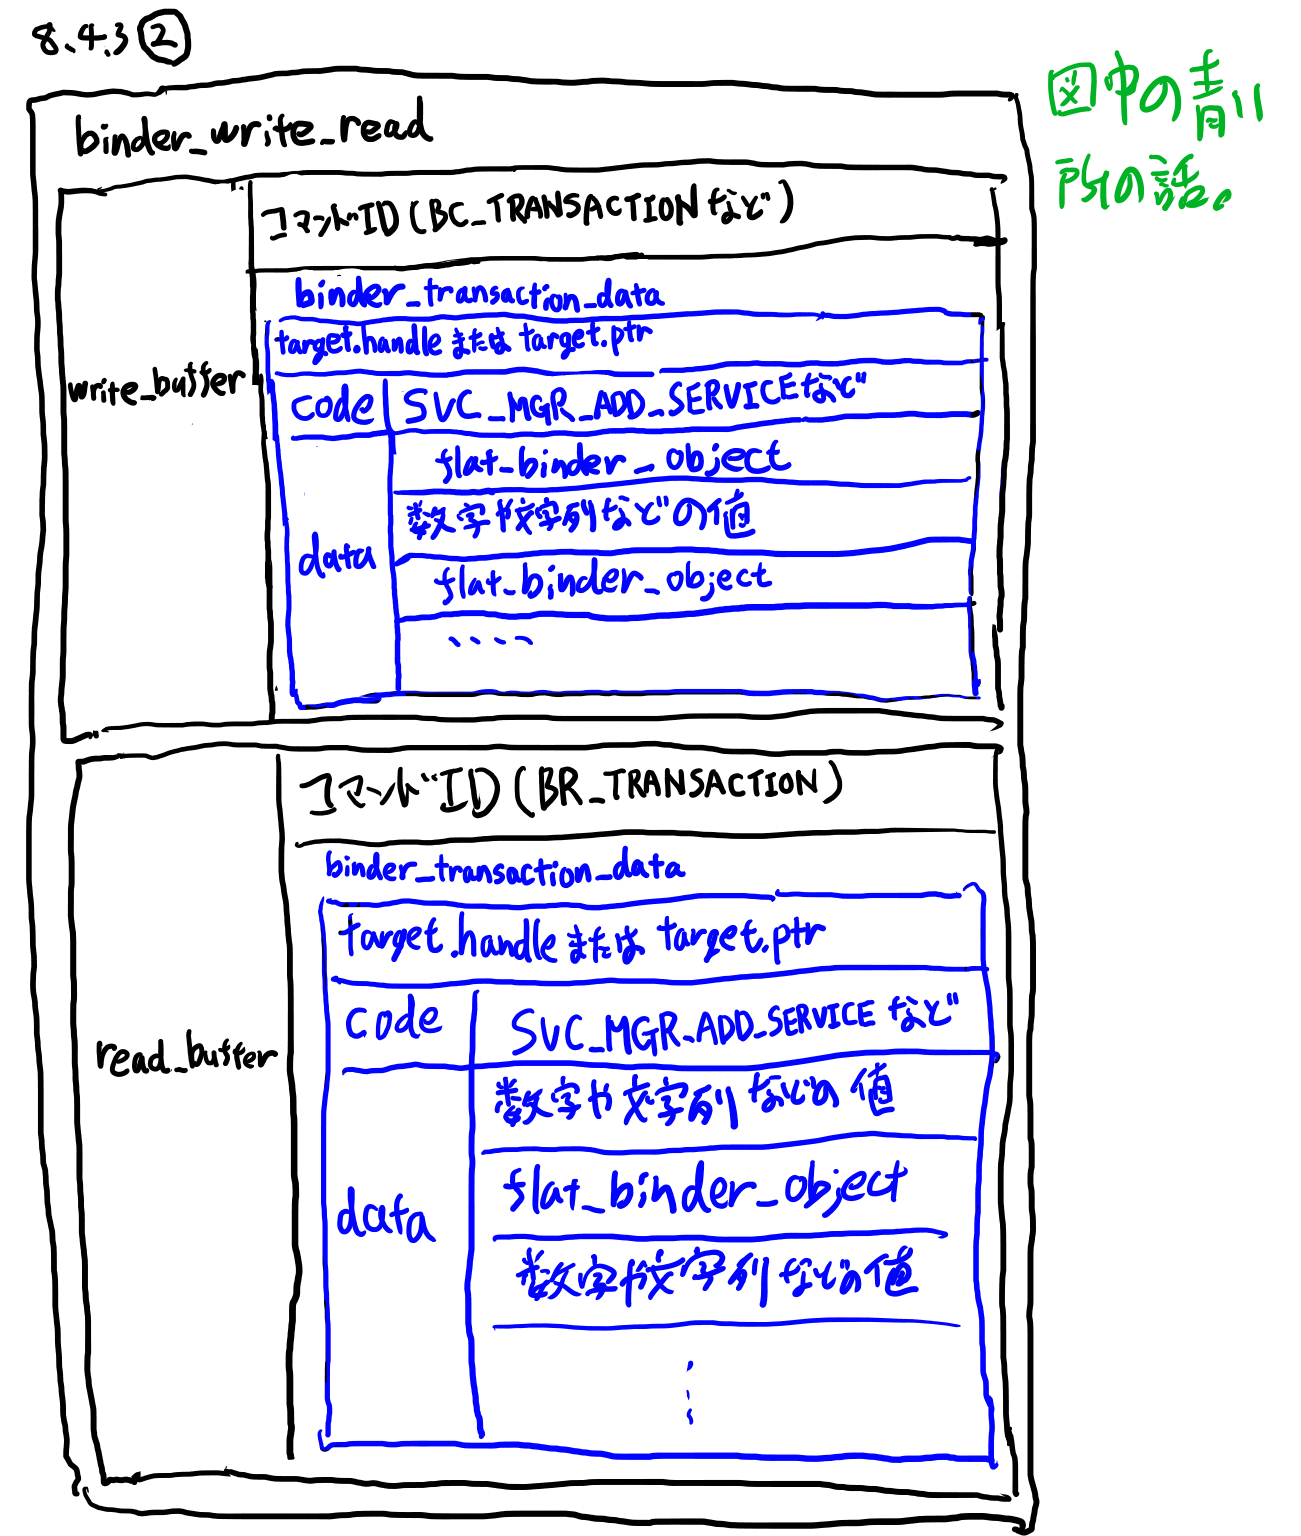 8.4.3 ②
図中の青い
所の話。
binder_write_read
write_buffer
コマンドID (BC_TRANSACTIONなど)
binder_transaction_data
target.handle または target.ptr
code
SVC_MGR_ADD_SERVICEなど
data
flat_binder_object
数字や文字列などの値
flat_binder_object
、、、、
read_buffer
コマンドID (BR_TRANSACTION)
binder_transaction_data
target.handle または target.ptr
code
SVC_MGR_ADD_SERVICE など
data
数字や文字列などの値
flat_binder_object
数字や文字列などの値
⋮